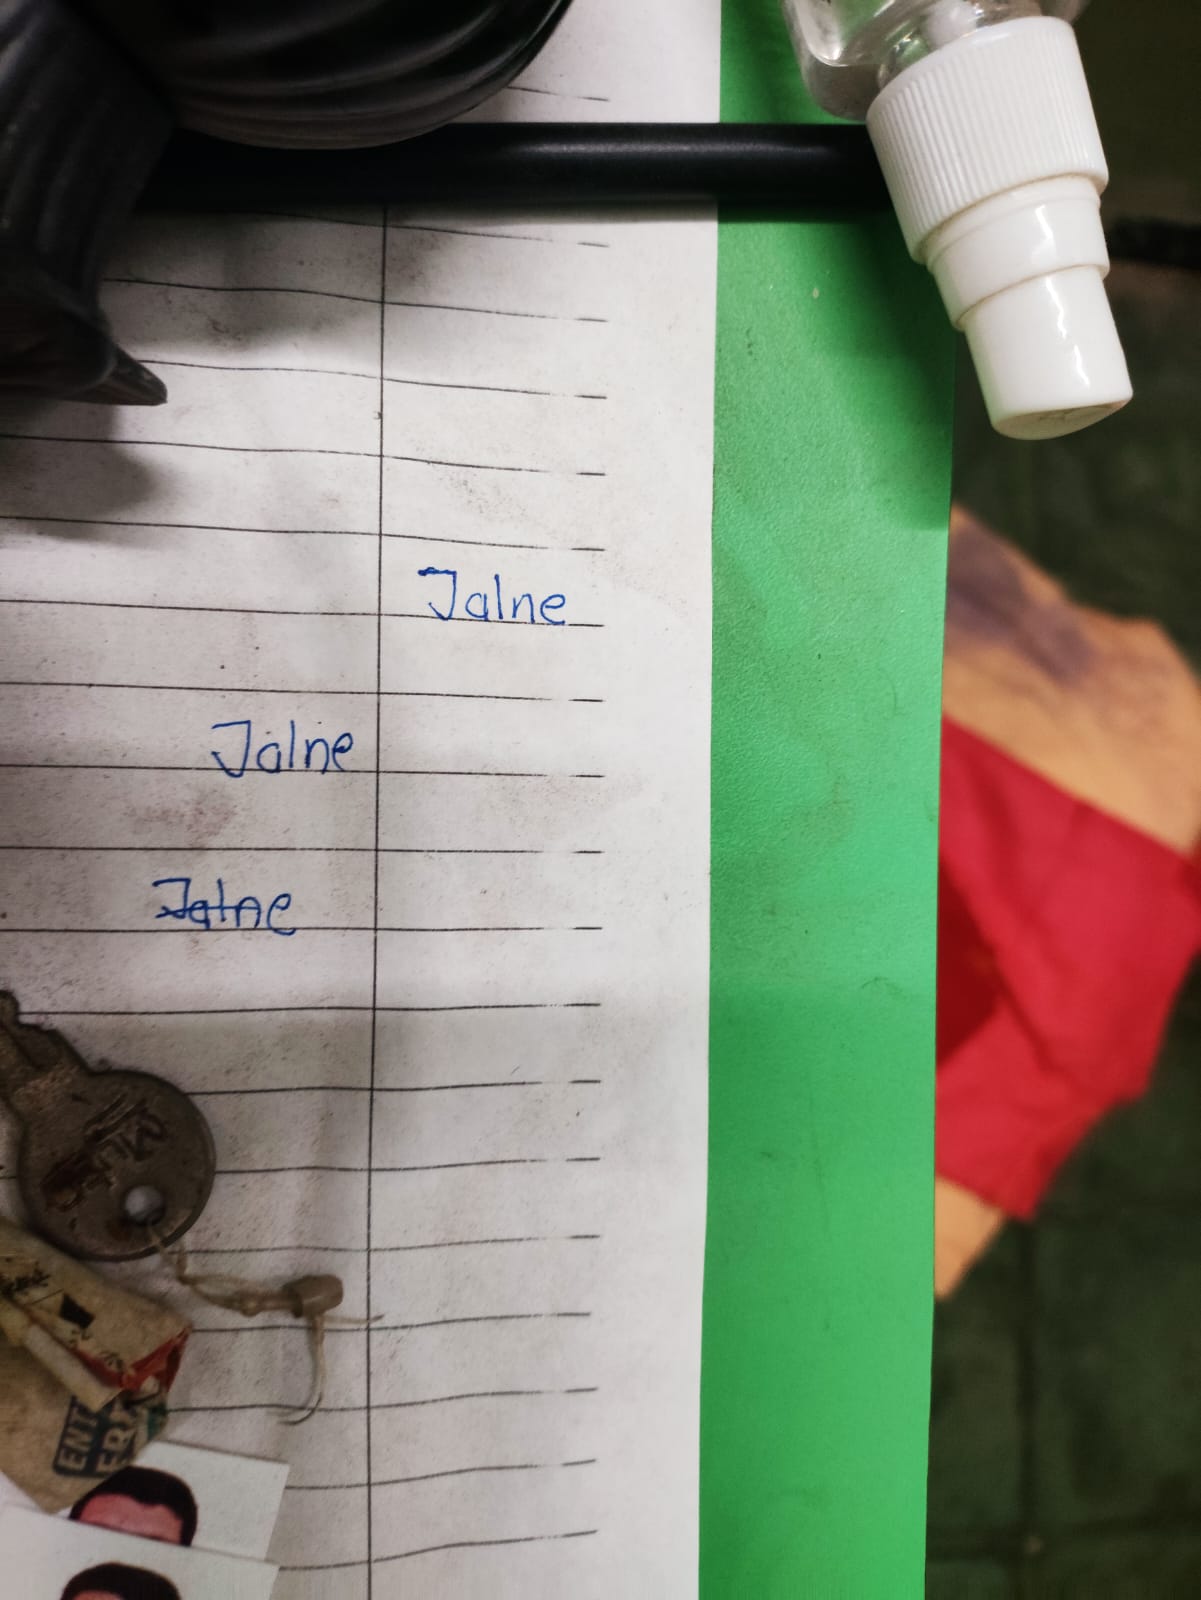 Jalne
Jalne
Jalne
ENT